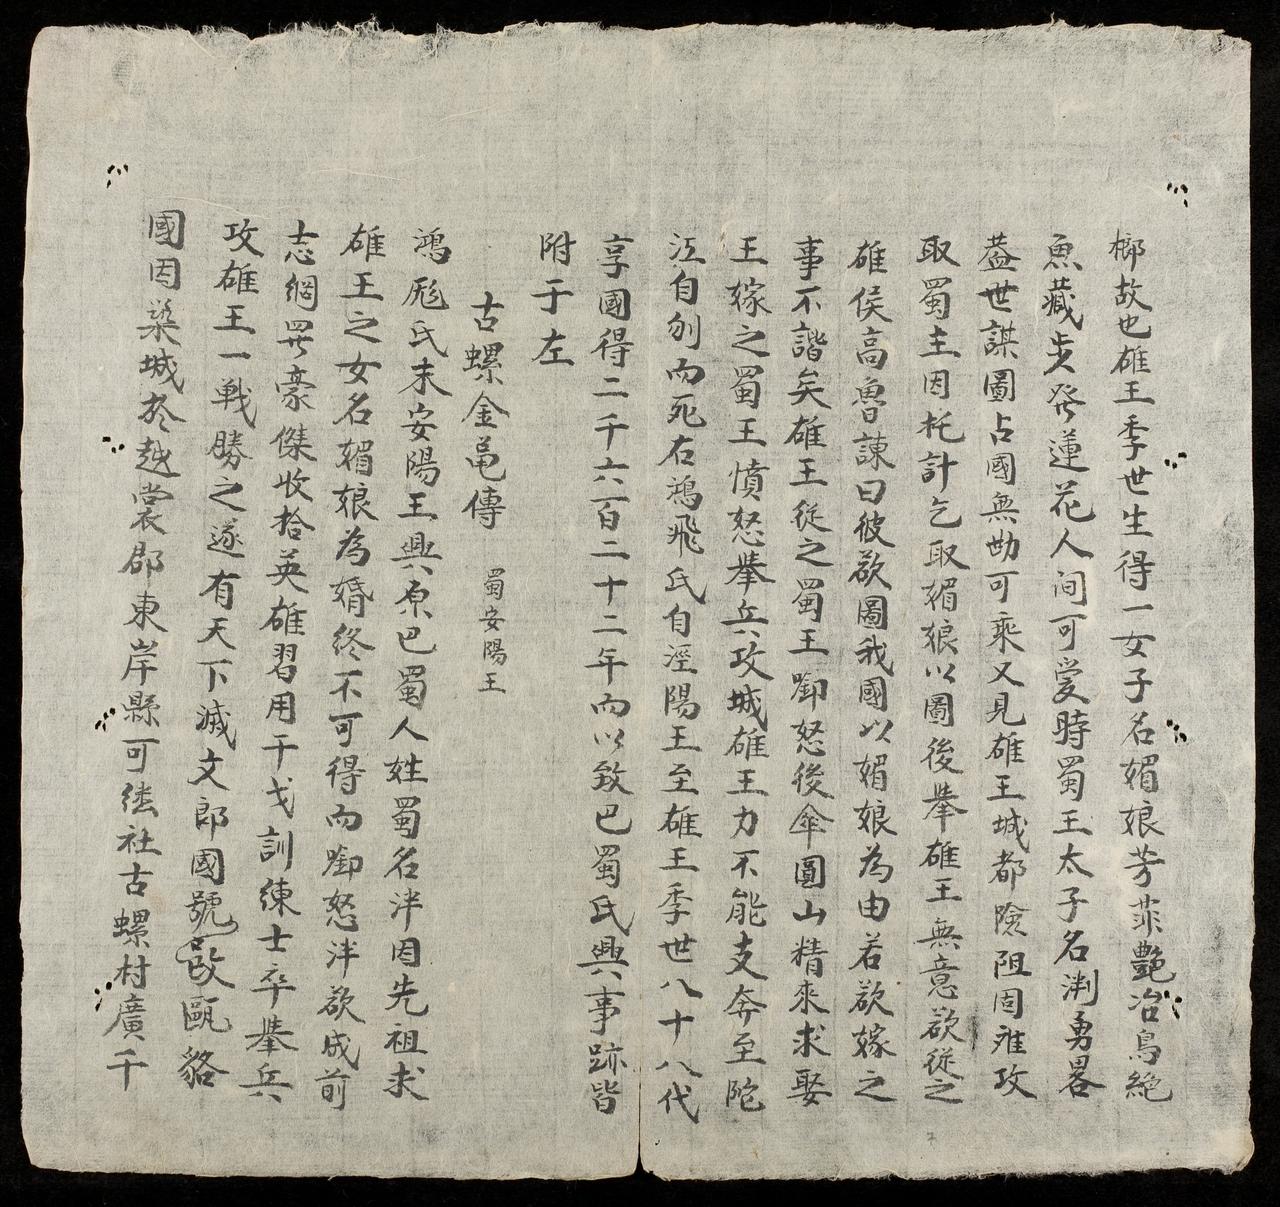 榔故也雄王季世生得一女子名媚娘芳菲艷冶鳥絕
魚藏步發蓮花人间可爱時蜀王太子名泮勇畧
盖世謀圖占國無功可乘又見雄王城都險阻固难攻
取蜀主因托計乞取媚娘以圖後舉雄王無意欲從之
雄侯高魯諫曰彼欲圖我國以媚娘為由若欲嫁之
事不諧矣雄王從之蜀王啣怒後傘圓山精來求娶
王嫁之蜀王憤怒舉兵攻城雄王力不能支奔至陀
江自刎而死右鴻飛氏自涇陽王至雄王季世八十八代
享國得二千六百二十二年而以致巴蜀氏興事跡皆
附于左
古螺金黾傳 蜀安陽王
鴻厖氏末安陽王興原巴蜀人姓蜀名泮因先祖求
雄王之女名媚娘為婚终不可得而啣怒泮欲成前
志網罗豪傑收拾英雄習用干戈訓練士卒舉兵
攻雄王一戰勝之遂有天下滅文郎國號改甌貉
國因築城於越裳郡東岸縣可社古螺村廣千